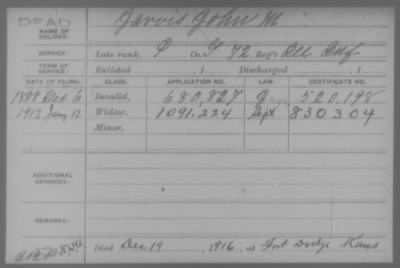 DEAD
NAME OF SOLDIER: Jarvis, John M
SERVICE: Late rank, P Co. G, 72 Reg't Ill Inf
TERM OF SERVICE: Enlisted , 1 Discharged , 1
DATE OF FILING. CLASS. APPLICATION NO. LAW. CERTIFICATE NO.
1888 Dec 6 Invalid, 680,827 520,198
1917 Jany 12 Widow, 1091.224 Sept 830304
Minor,
ADDITIONAL SERVICES:
REMARKS:
Died Dec 19 , 1916, at Fort Dodge, Kans